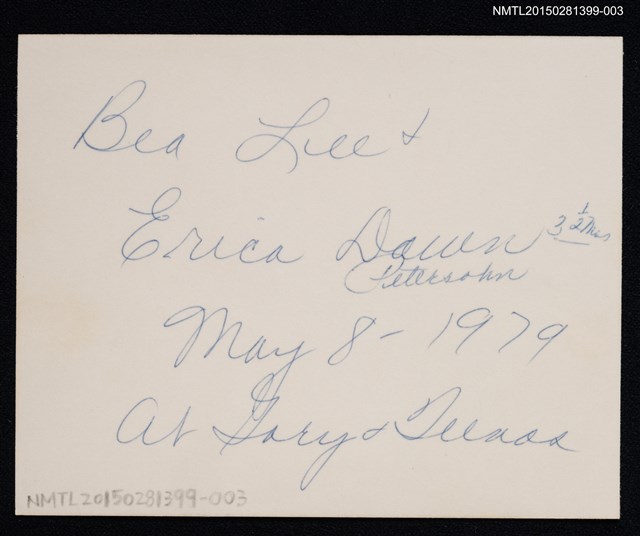 NMTL20150281399-003
Bea Lee +
Erica Dawn 3 1/2 Mos
Petersohn
May 8 - 1979
At Gary +
NMTL20150281399-003